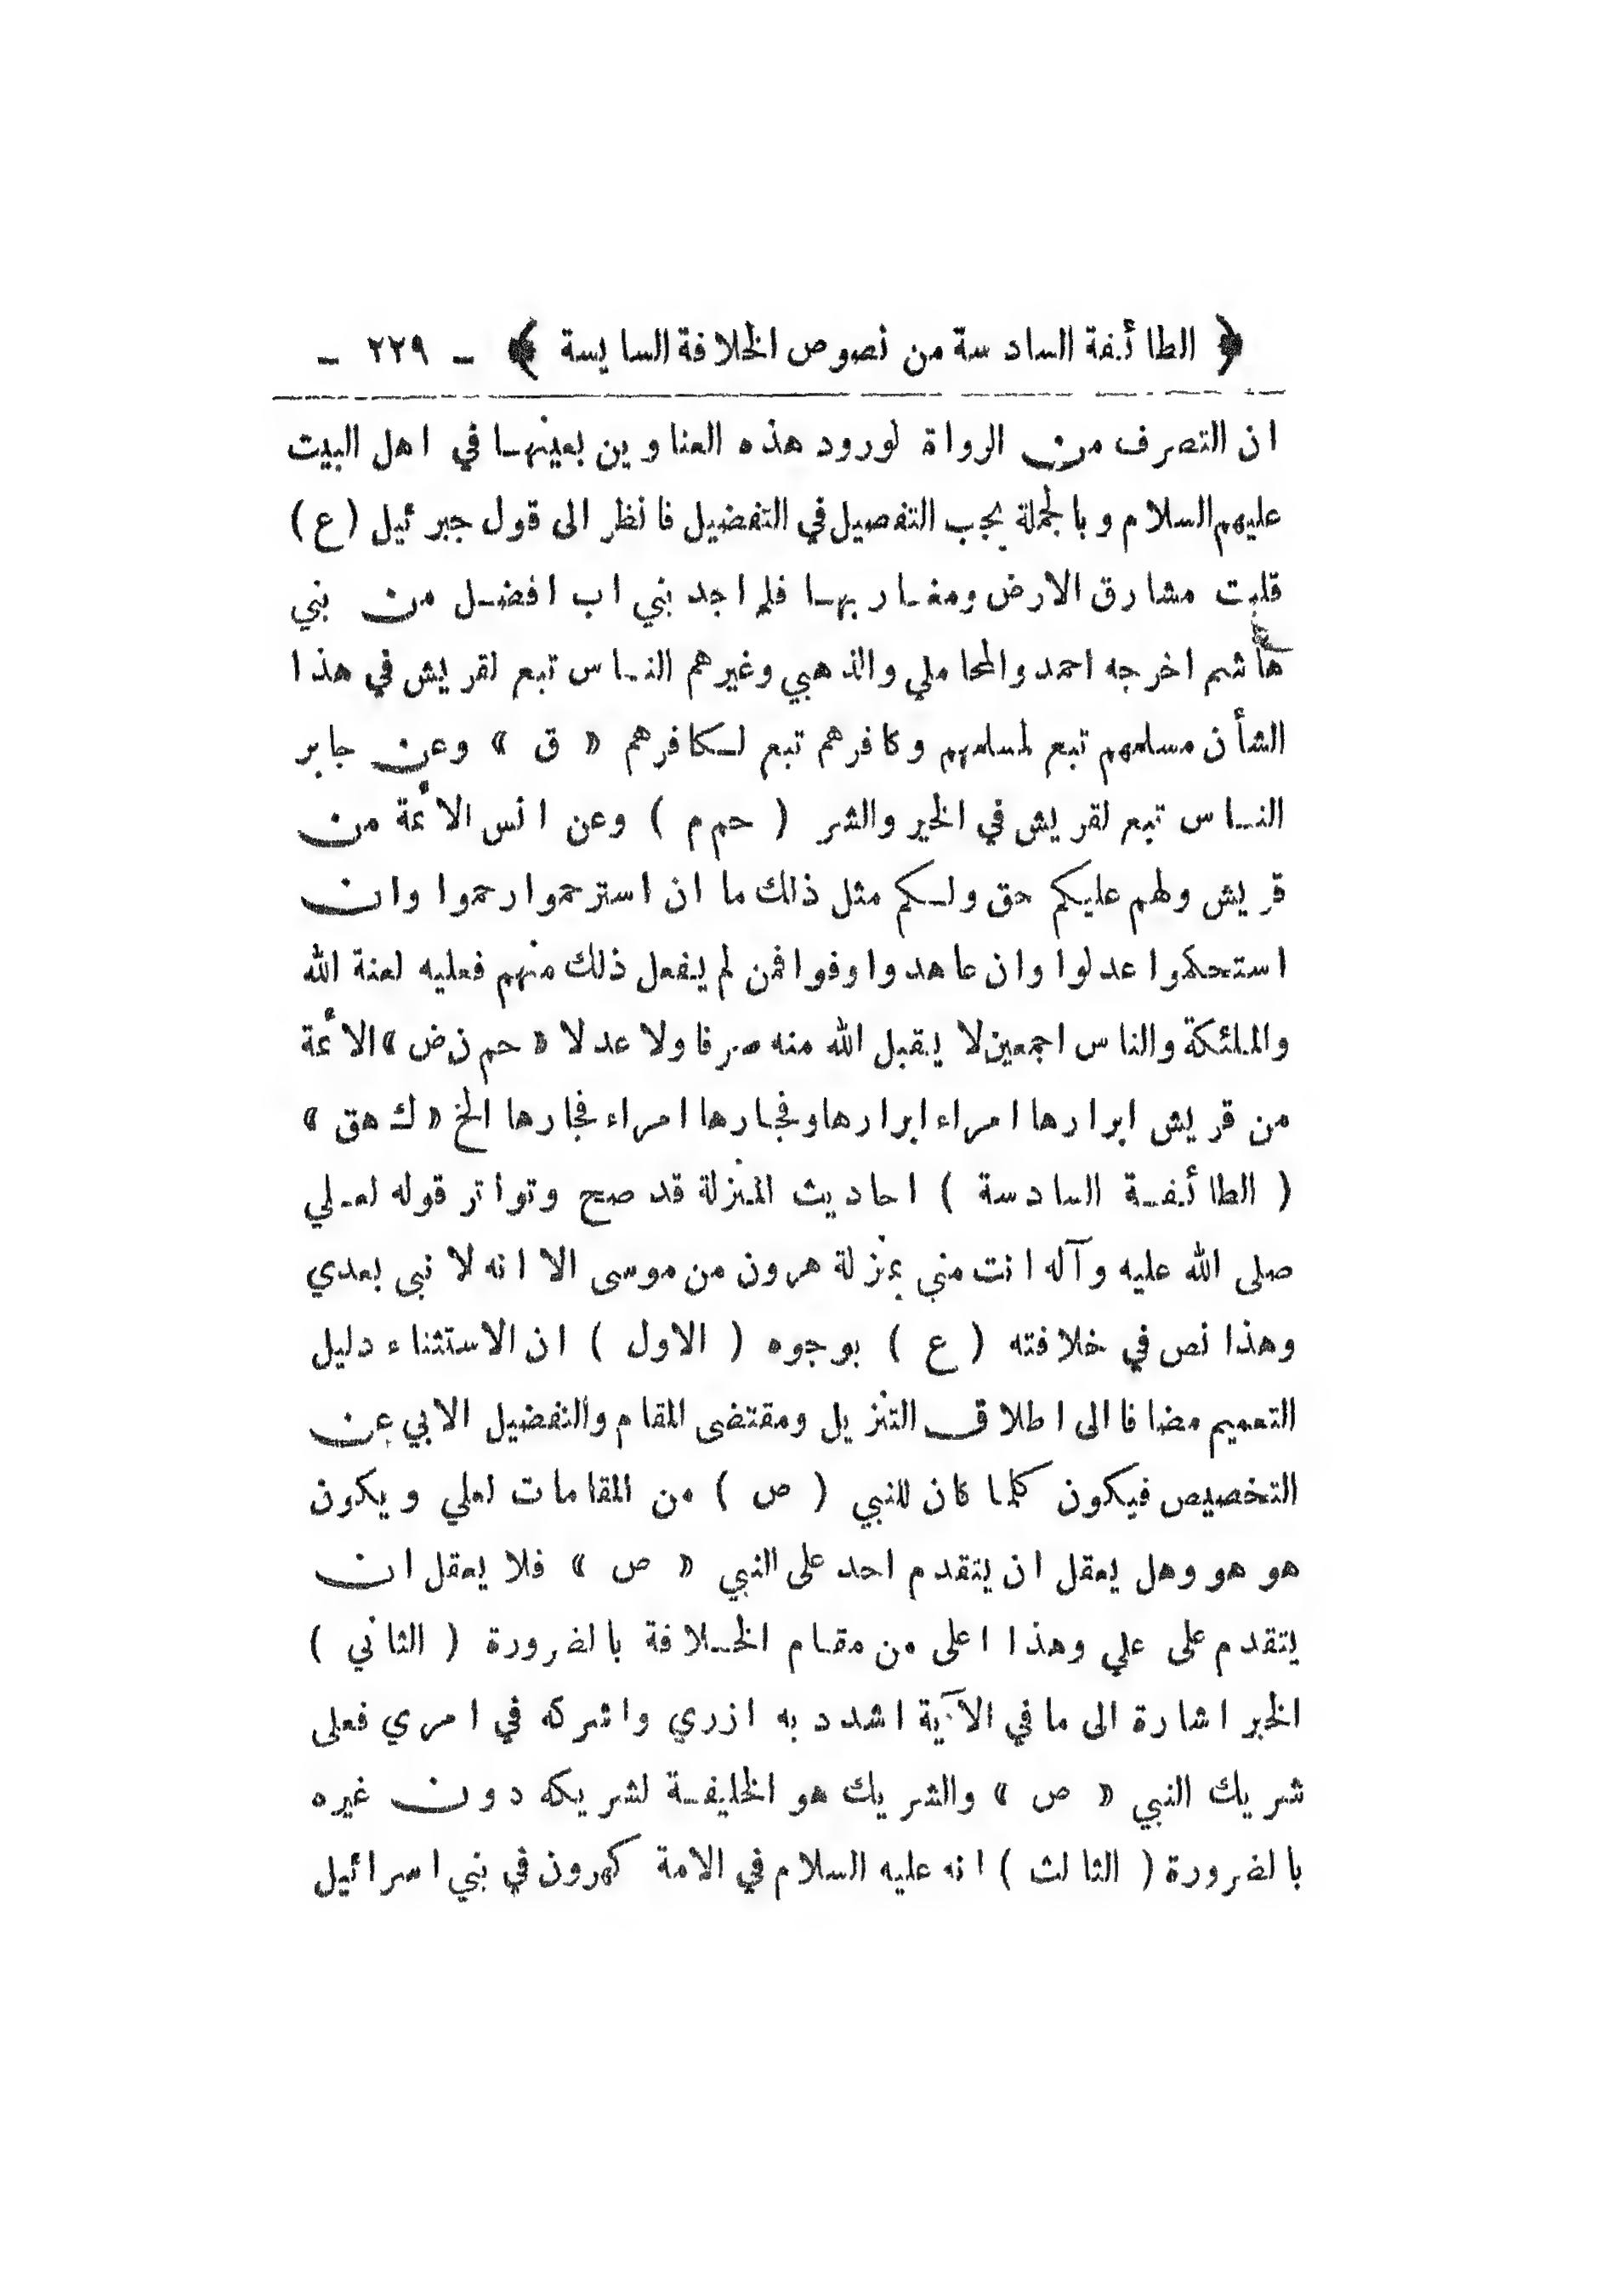 ﴿ الطائفة السادسة من نصوص الخلافة السايسة ﴾ – ٢٢٩ –
ان التصرف من الرواة لورود هذه العناوين بعينها في اهل البيت
عليهم السلام وبالجملة يجب التفصيل في التفضيل فانظر الى قول جبرئيل (ع)
قلبت مشارق الارض ومغاربها فلم اجد بني اب افضل من بني
هاشم اخرجه احمد والمحاملي والذهبي وغيرهم الناس تبع لقريش في هذا
الشأن مسلمهم تبع لمسلمهم وكافرهم تبع لكافرهم « ق » وعن جابر
الناس تبع لقريش في الخير والشر ( حم م ) وعن انس الائمة من
قريش ولهم عليكم حق ولكم مثل ذلك ما ان استرحموا رحموا وان
استحكموا عدلوا وان عاهدوا وفوا فمن لم يفعل ذلك منهم فعليه لعنة الله
والملئكة والناس اجمعين لا يقبل الله منه صرفا ولا عدلا « حم ن ض » الائمة
من قريش ابرارها امراء ابرارها وفجارها امراء فجارها الخ « ك هق »
( الطائفة السادسة ) احاديث المنزلة قد صح وتواتر قوله لعلي
صلى الله عليه وآله انت مني بمنزلة هرون من موسى الا انه لا نبى بعدي
وهذا نص في خلافته ( ع ) بوجوه ( الاول ) ان الاستثناء دليل
التعميم مضافا الى اطلاق التنزيل ومقتضى المقام والتفضيل الابي عن
التخصيص فيكون كلما كان للنبي ( ص ) من المقامات لعلي ويكون
هو هو وهل يعقل ان يتقدم احد على النبي « ص » فلا يعقل ان
يتقدم على علي وهذا اعلى من مقام الخلافة بالضرورة ( الثاني )
الخبر اشارة الى ما في الآية اشدد به ازري واشركه في امري فعلى
شريك النبي « ص » والشريك هو الخليفة لشريكه دون غيره
بالضرورة ( الثالث ) انه عليه السلام في الامة كهرون في بني اسرائيل